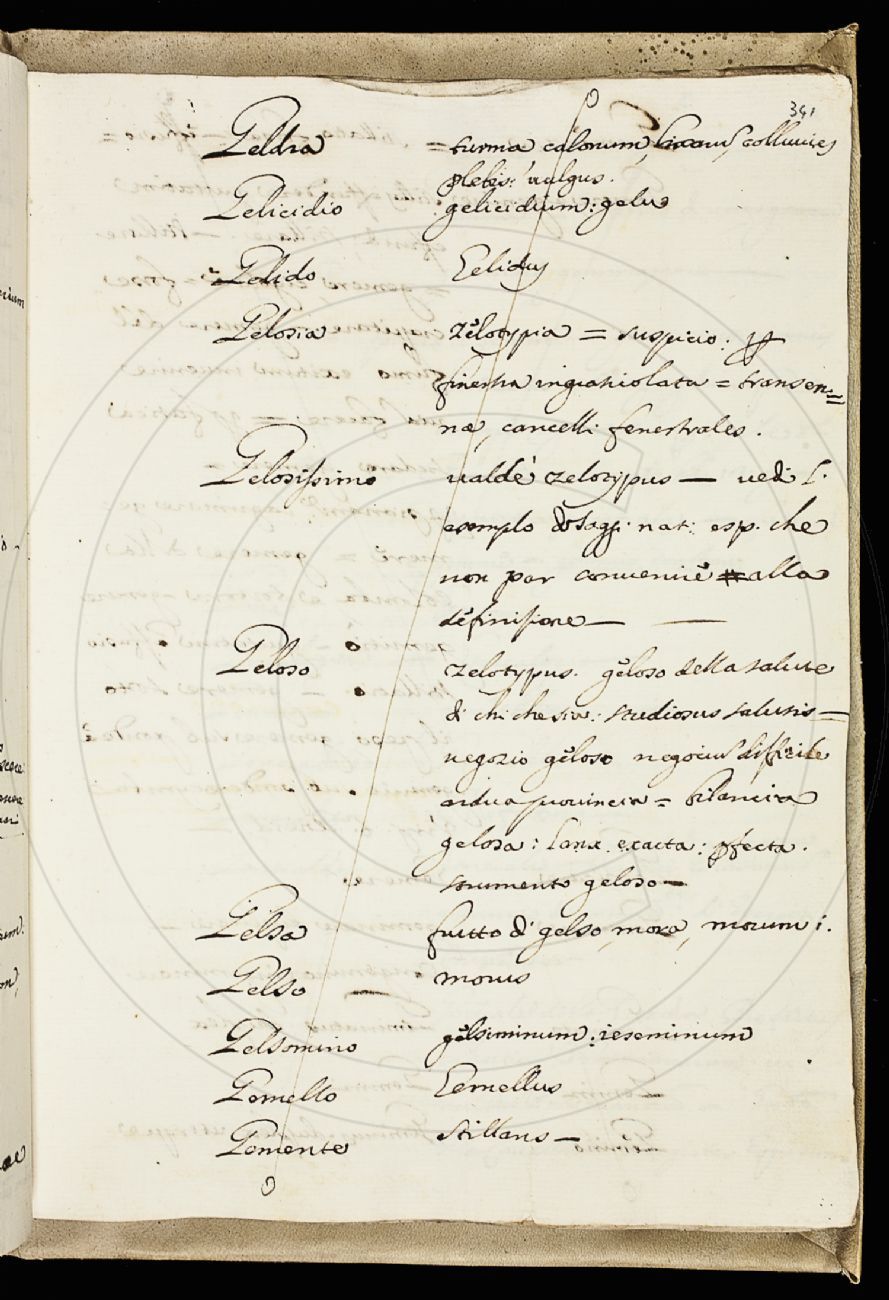 341
Geldra = turma calonum, lixarum, colluvies
plebis: vulgus.
Gelicidio gelicidium: gelu
Gelido Gelidus
Gelosia zelotypia = suspicio:
finestra ingraticolata = transen=
na, cancelli fenestrales.
Gelosissimo valdè zelotypus — vedi l'
esempio di Sagg: nat: esp. che
non par convenire alla
definizione —
Geloso zelotypus. geloso della salute
di chi che sia: studiosus salutis =
negozio geloso negocium difficile
ardua provincia = bilancia
gelosa: lanx exacta: pfecta.
strumento geloso —
Gelsa frutto di gelso, mora, morum i.
Gelso — morus
Gelsomino gelsiminum: ieseminum
Gemello Gemellus
Gemente stillans —